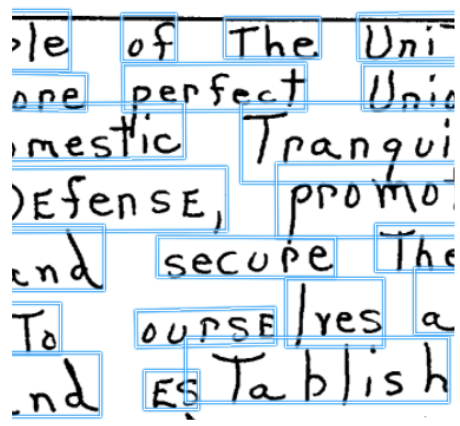 ple of The Uni
ore perfect Unio
omestic Tranqui
DEfensE, promot
and secure The
To oursE lves a
and ES Tablish